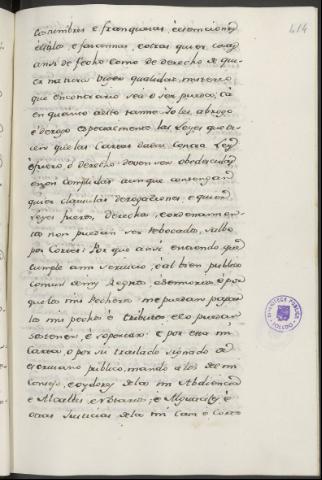 414
Costumbres e franquezas, e esemciones
e estilo e fazannas, e otras quier cosas
ansi de fecho como de derecho de qual
quier natura vigor qualidad, misterio
que en contrario sea o ser pueda, Ca
en quanto a esto tanne Yo les abrogo
e derogo especialmente las Leyes que di
cen que las Cartas dadas contra Ley
e fuero o derecho deven ser obedecidas
e non complidas aunque contengan
quier clausulas derogatorias, e que los
reyes fueros, derechos, e ordenamien
tos non puedan ser rebocados, salvo
por Cortes: Por que ansi entiendo que
cumple a mi servicio, e al bien publico
comun de my Regno, e demoria, e por
que los mis Pecheros me puedan pagar
los mis pechos e tributos e lo puedan
sostener, e soportar: e por esta mi
Carta, o por su traslado signado de
escrivano publico, mando a los de mi
Consejo, e oydores de la mi Abdiencia
e Alcalles, e Notarios, e Alguaciles, e
otras Justicias de la mi Casa e Corte
BIBLIOTECA PUBLICA
TOLEDO